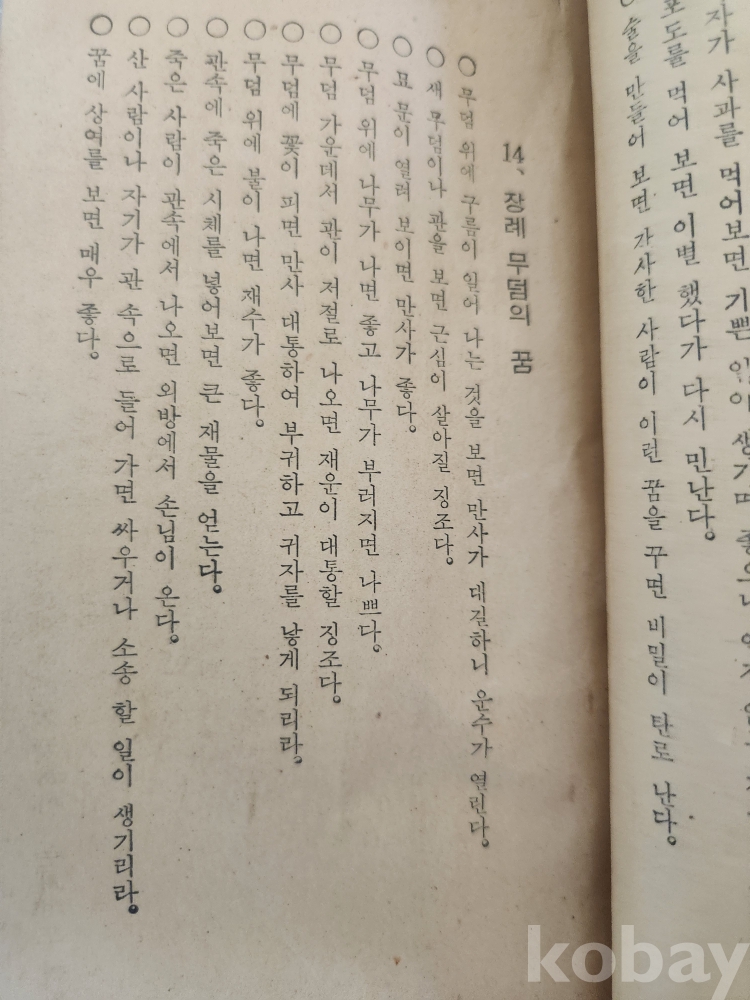 자가 사과를 먹어보면 기쁜 일이 생기며 좋으나
포도를 먹어 보면 이별 했다가 다시 만난다。
○술을 만들어 보면 가사한 사람이 이런 꿈을 꾸면 비밀이 탄로 난다。
14、장례 무덤의 꿈
○무덤 위에 구름이 일어 나는 것을 보면 만사가 대길하니 운수가 열린다。
○새 무덤이나 관을 보면 근심이 살아질 징조다。
○묘 문이 열려 보이면 만사가 좋다。
○무덤 위에 나무가 나면 좋고 나무가 부러지면 나쁘다。
○무덤 가운데서 관이 저절로 나오면 재운이 대통할 징조다。
○무덤에 꽃이 피면 만사 대통하여 부귀하고 귀자를 낳게 되리라。
○무덤 위에 불이 나면 재수가 좋다。
○관속에 죽은 시체를 넣어보면 큰 재물을 얻는다。
○죽은 사람이 관속에서 나오면 외방에서 손님이 온다。
○산 사람이나 자기가 관 속으로 들어 가면 싸우거나 소송 할 일이 생기리라。
○꿈에 상여를 보면 매우 좋다。
kobay